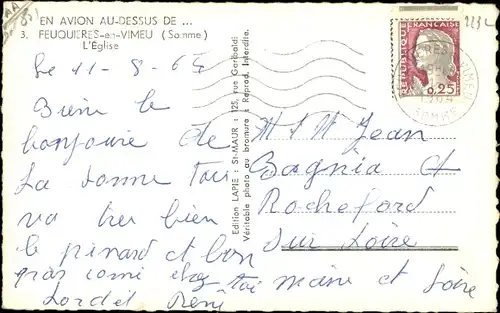 EN AVION AU-DESSUS DE ...
3. FEUQUIÈRES-en-VIMEU (Somme)
L'Église
Le 11-8-64
Bien le
bonjour de
La Somme Tou
va tres bien
le pinard et bon
pas comme chez toi maine et Loire
Lardit René
Edition LAPIE : St-MAUR : 125, rue Garibaldi
Véritable photo au bromure : Reprod. Interdite.
REPUBLIQUE FRANÇAISE
0,25
1964
SOMME
M et M Jean
Bagnia et
Rocheford
sur Loire